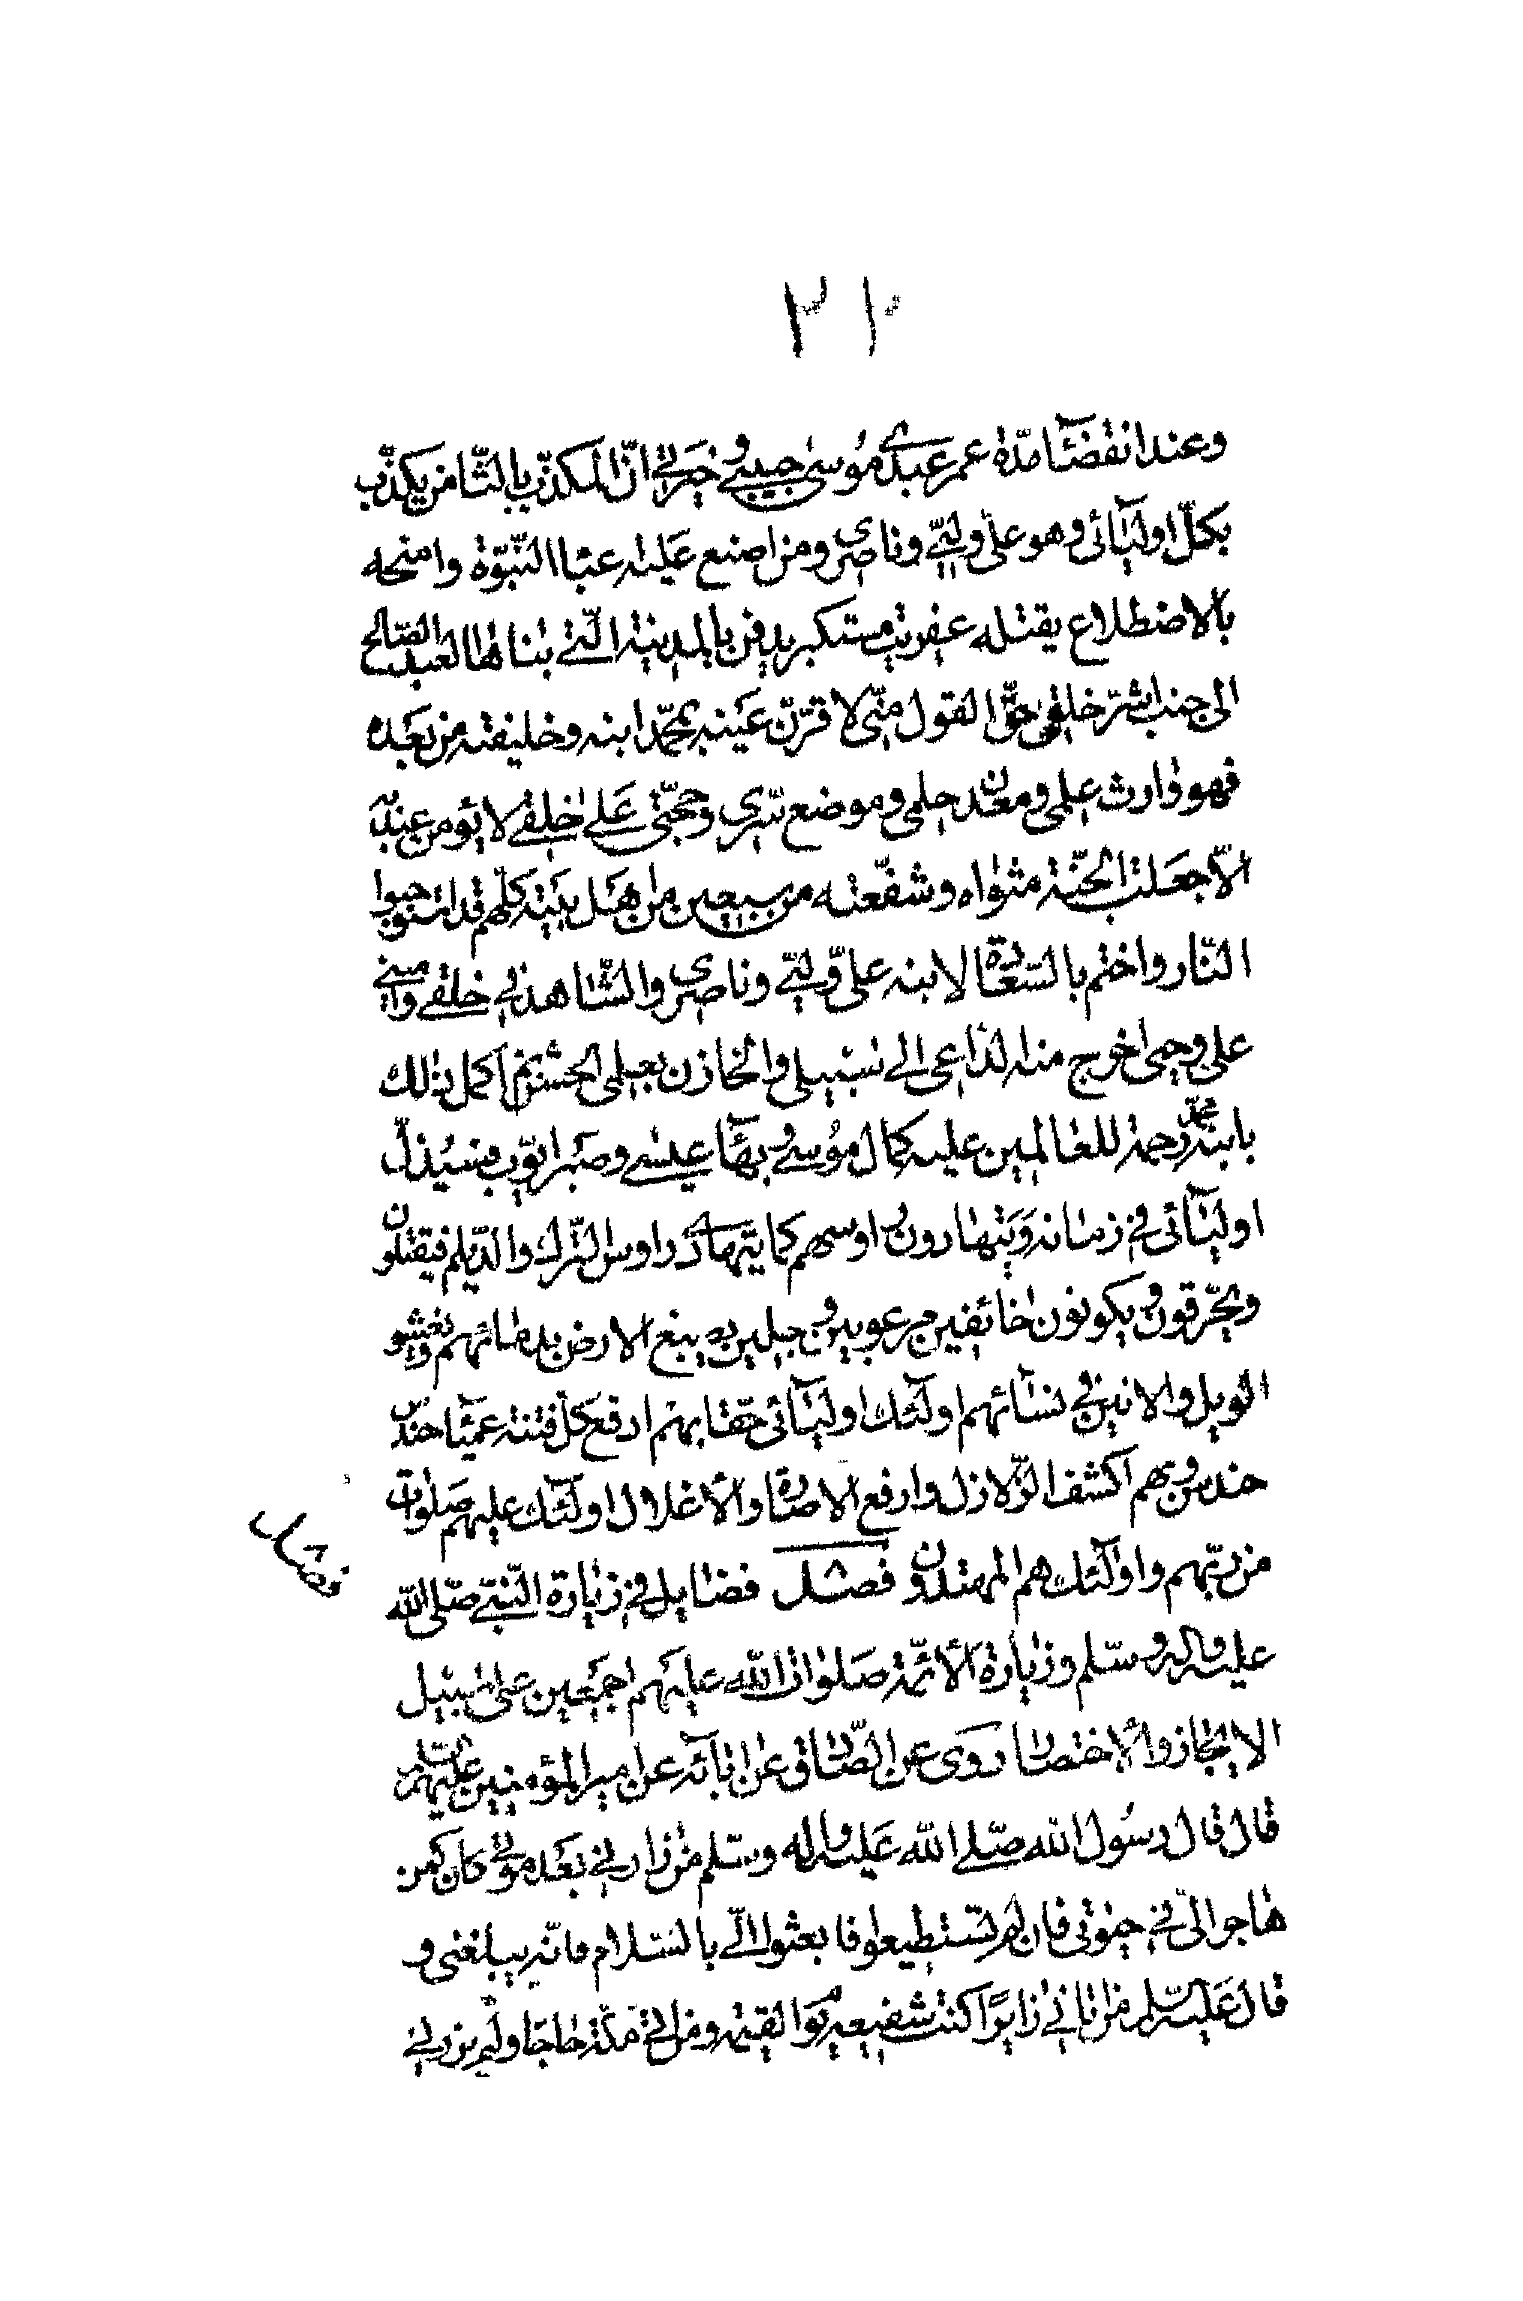 ٢١٠
وعند انقضآء مدّة عمر عبدى موسى حبيبى و خيرتى انّ المكذّب بالثّامن يكذّب
بكلّ اوليآئى وهو علىّ وليّى وناصرى ومن اضع عليه عباء النّبوّة وامنحه
بالاضطلاع يقتله عفريت مستكبر يدفن بالمدينة الّتى بناها العبد الصّالح
الى جنب شرّ خلقى حقّ القول منّى لاقرّنّ عينه بمحمّد ابنه وخليفته من بعده
فهو وارث علمى ومعدن حلمى وموضع سرّى وحجّتى على خلقى لا يؤمن عبد به
الّا جعلت الجنّة مثواه وشفّعته من سبعين من اهل بيته كلّهم قد استوجبوا
النّار واختم بالسّعادة لابنه علىّ وليّى وناصرى والشّاهد فى خلقى وامينى
على وحيى اخرج منه الدّاعى الى سبيلى والخازن بعلمى الحسن ثم اكمل ذلك
بابنه محمّد رحمة للعالمين عليه كمال موسى و بهآء عيسى وصبر ايّوب فسيذلّ
اوليآئى فى زمانه ويتهادون رؤسهم كما يتهادى رؤس التّرك والدّيلم فيقتلون
ويحرّقون و يكونون خائفين مرعوبين و جلين يصبغ الارض بدمائهم و يفشو
الويل والانين فى نسآئهم اولئك اوليآئى حقّا بهم ادفع كلّ فتنة عميآء حندس
حندس وبهم اكشف الزّلازل وارفع الاصار والأغلال اولئك عليهم صلوات
من ربّهم واولئك هم المهتدون فصل فضايل فى زيارة النّبىّ صلّى الله
فضايل
عليه وآله وسلّم وزيارة الأئمّة صلوات الله عليهم اجمعين على سبيل
الايجاز والأختصار روى عن الصّادق عن آبآئه عن امير المؤمنين عليهم السّلام
قال قال رسول الله صلّى الله عليه وآله وسلّم من زارنى بعد موتى كان كمن
هاجر الىّ فى حيوتى فان لم تستطيعوا فابعثوا الىّ بالسّلام فانّه يبلغنى و
قال عليه السّلم من اتانى زايرًا كنت شفيعه يوم القيمة ومن اتى مكّة حاجّا ولم يزرنى